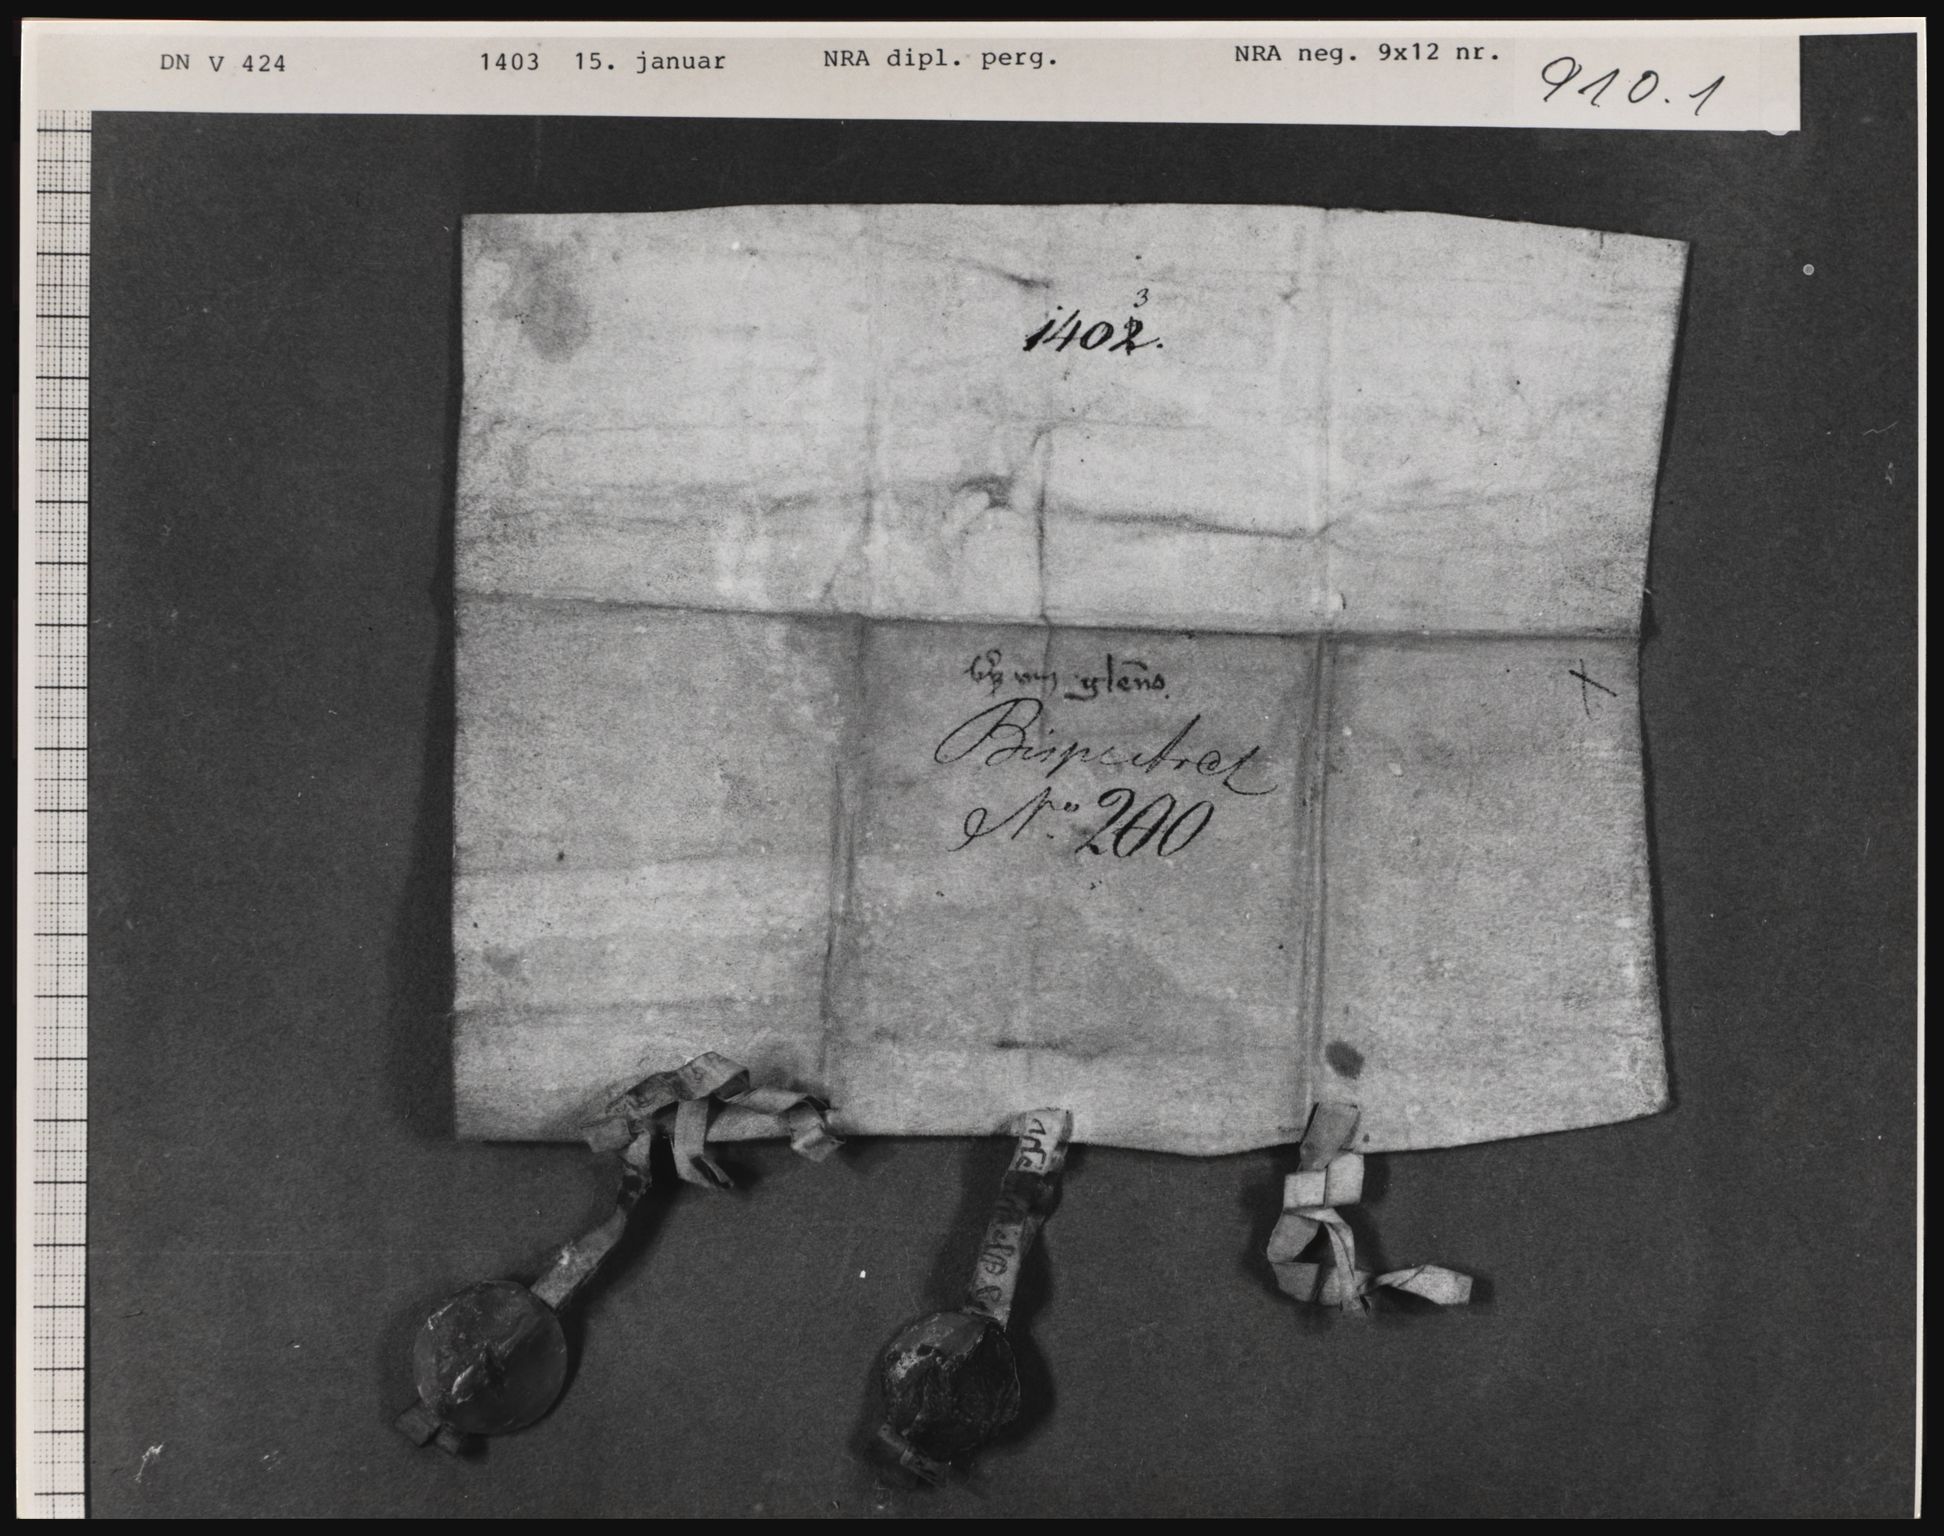 DN V 424 1403 15. januar NRA dipl. perg. NRA neg. 9x12 nr. 910.1
3
1402.
glen̄o
BispeArel
No. 200